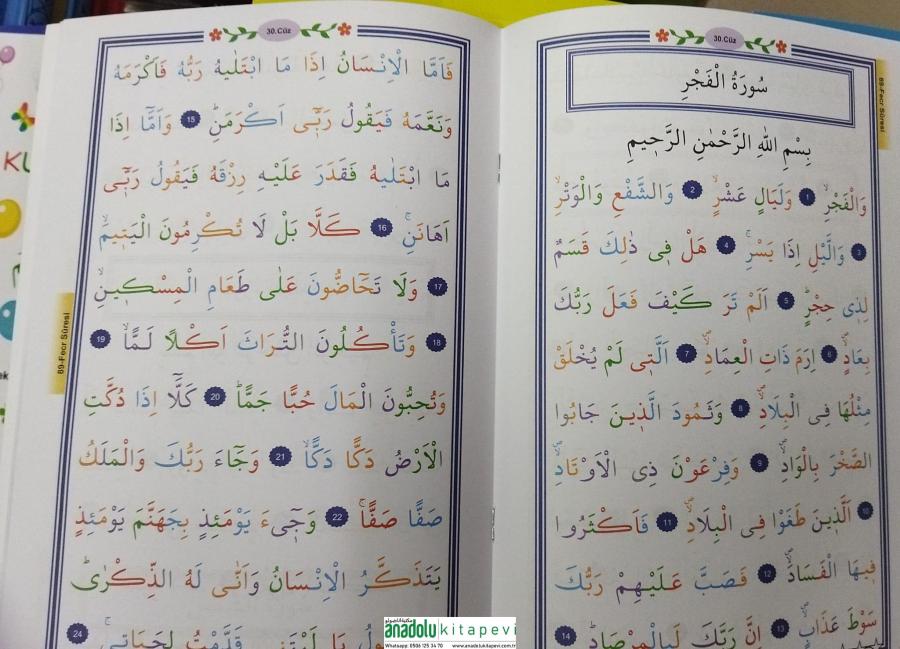 30.Cüz
سُورَةُ الْفَجْرِ
89-Fecr Sûresi
بِسْمِ اللّٰهِ الرَّحْمٰنِ الرَّح۪يمِ
وَالْفَجْرِۙ 1 وَلَيَالٍ عَشْرٍۙ 2 وَالشَّفْعِ وَالْوَتْرِۙ
3 وَالَّيْلِ اِذَا يَسْرِۚ 4 هَلْ ف۪ي ذٰلِكَ قَسَمٌ
لِذ۪ي حِجْرٍۜ 5 اَلَمْ تَرَ كَيْفَ فَعَلَ رَبُّكَ
بِعَادٍۙۖ 6 اِرَمَ ذَاتِ الْعِمَادِۙۖ 7 اَلَّت۪ي لَمْ يُخْلَقْ
مِثْلُهَا فِي الْبِلَادِۙۖ 8 وَثَمُودَ الَّذ۪ينَ جَابُوا
الصَّخْرَ بِالْوَادِۙۖ 9 وَفِرْعَوْنَ ذِي الْاَوْتَادِۙۖ
10 اَلَّذ۪ينَ طَغَوْا فِي الْبِلَادِۙۖ 11 فَاَكْثَرُوا
ف۪يهَا الْفَسَادَۙۖ 12 فَصَبَّ عَلَيْهِمْ رَبُّكَ
سَوْطَ عَذَابٍۚۙ 13 اِنَّ رَبَّكَ لَبِالْمِرْصَادِۜ 14
30.Cüz
فَاَمَّا الْاِنْسَانُ اِذَا مَا ابْتَلٰيهُ رَبُّهُ فَاَكْرَمَهُ
وَنَعَّمَهُ فَيَقُولُ رَبّ۪ٓي اَكْرَمَنِۜ 15 وَاَمَّٓا اِذَا
مَا ابْتَلٰيهُ فَقَدَرَ عَلَيْهِ رِزْقَهُ فَيَقُولُ رَبّ۪ٓي
اَهَانَنِۚ 16 كَلَّا بَلْ لَا تُكْرِمُونَ الْيَت۪يمَۙ
17 وَلَا تَحَٓاضُّونَ عَلٰى طَعَامِ الْمِسْك۪ينِۙ
18 وَتَأْكُلُونَ التُّرَاثَ اَكْلًا لَمًّاۙ 19
وَتُحِبُّونَ الْمَالَ حُبًّا جَمًّاۜ 20 كَلَّٓا اِذَا دُكَّتِ
الْاَرْضُ دَكًّا دَكًّاۙ 21 وَجَٓاءَ رَبُّكَ وَالْمَلَكُ
صَفًّا صَفًّاۚ 22 وَج۪ٓيءَ يَوْمَئِذٍ بِجَهَنَّمَ يَوْمَئِذٍ
يَتَذَكَّرُ الْاِنْسَانُ وَاَنّٰى لَهُ الذِّكْرٰىۜ
يَا لَيْتَن۪ي قَدَّمْتُ لِحَيَات۪يۚ 24
89-Fecr Sûresi
anadolu kitapevi
Whatsapp: 0506 125 34 70 www.anadolukitapevi.com.tr